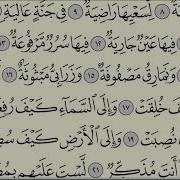 ٨ لِّسَعْيِهَا رَاضِيَةٌ ٩ فِي جَنَّةٍ عَالِيَةٍ
فِيهَا عَيْنٌ جَارِيَةٌ ١٢ فِيهَا سُرُرٌ مَّرْفُوعَةٌ ١٣
وَنَمَارِقُ مَصْفُوفَةٌ ١٥ وَزَرَابِيُّ مَبْثُوثَةٌ ١٦
خُلِقَتْ ١٧ وَإِلَى السَّمَاءِ كَيْفَ
نُصِبَتْ ١٩ وَإِلَى الْأَرْضِ كَيْفَ
أَنتَ مُذَكِّرٌ ٢١ لَّسْتَ عَلَيْهِم